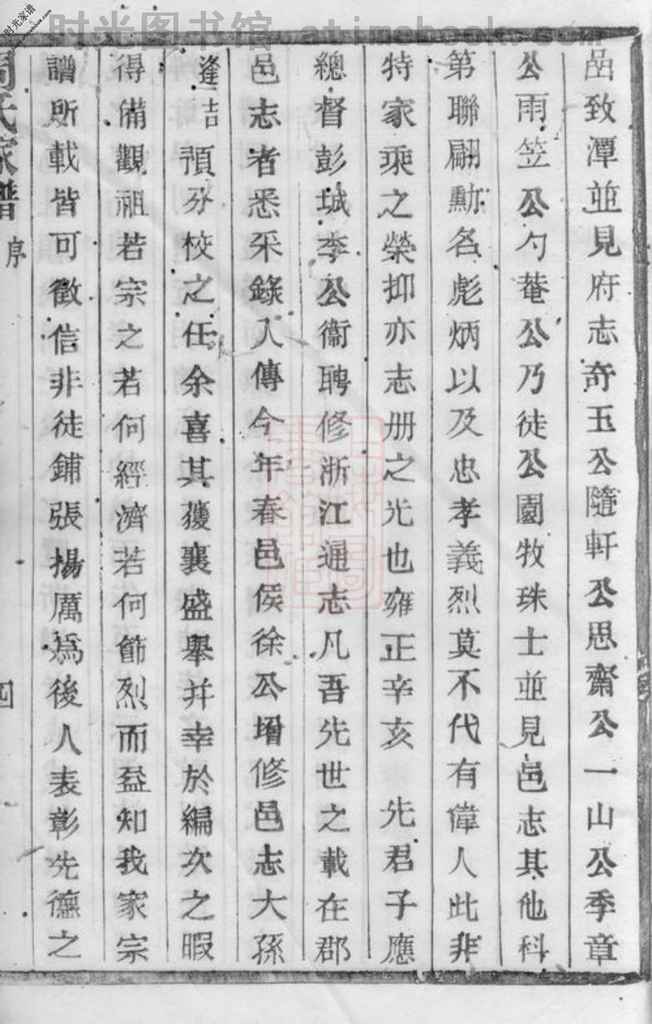 时光图书馆 atimebook.com
时光家谱
嵒致潭並見府志奇玉公隨軒公思齋公一山公季章
公雨笠公勺菴公乃徒公園牧珠士並見邑志其他科
第聯翩勳名彪炳以及忠孝義烈莫不代有偉人此非
特家乘之榮抑亦志册之光也雍正辛亥 先君子應
總督彭城李公衞聘修浙江通志凡吾先世之載在郡
邑志者悉采錄入傳今年春邑侯徐公增修邑志大孫
逢吉 預分校之任余喜其獲襄盛舉并幸於編次之暇
得備觀祖若宗之若何經濟若何節烈而益知我家宗
譜所載皆可徵信非徒鋪張揚厲爲後人表彰先德之
周氏家譜 序 四